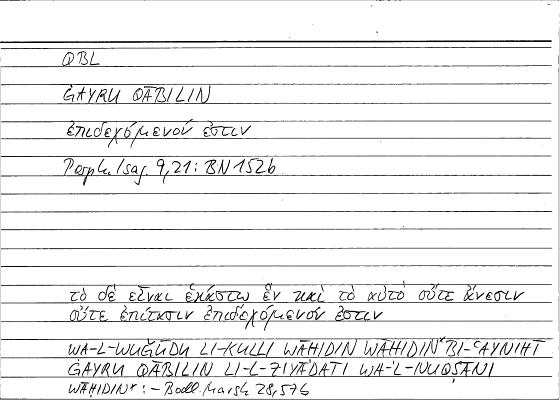 QBL
ĠAYRU QĀBILIN
ἐπιδεχόμενόν ἐστιν
Porph. Isag. 9,21: BN 152b
τὸ δὲ εἶναι ἑκάστῳ ἓν καὶ τὸ αὐτὸ οὔτε ἄνεσιν
οὔτε ἐπίτασιν ἐπιδεχόμενόν ἐστιν
WA-L-WUǦŪDU LI-KULLI WĀḤIDIN WĀḤIDIN* BI-ʿAYNIHĪ
ĠAYRU QĀBILIN LI-L-ZIYĀDATI WA-ʾL-NUQṢĀNI
WĀḤIDIN*: – Bodl. Marsh 28,57b